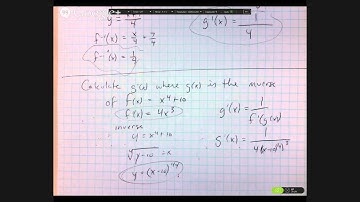 y = x+7/4
f⁻¹(x) = x/4 + 7/4
f⁻¹'(x) = 1/4
g'(x) = 1/4
Calculate g'(x) where g(x) is the inverse
of f(x) = x⁴+10
f'(x) = 4x³
inverse
y = x⁴+10
∜(y-10) = x
y = (x-10)^(1/4)
g'(x) = 1/f'(g(x))
g'(x) = 1/4((x-10)^(1/4))³